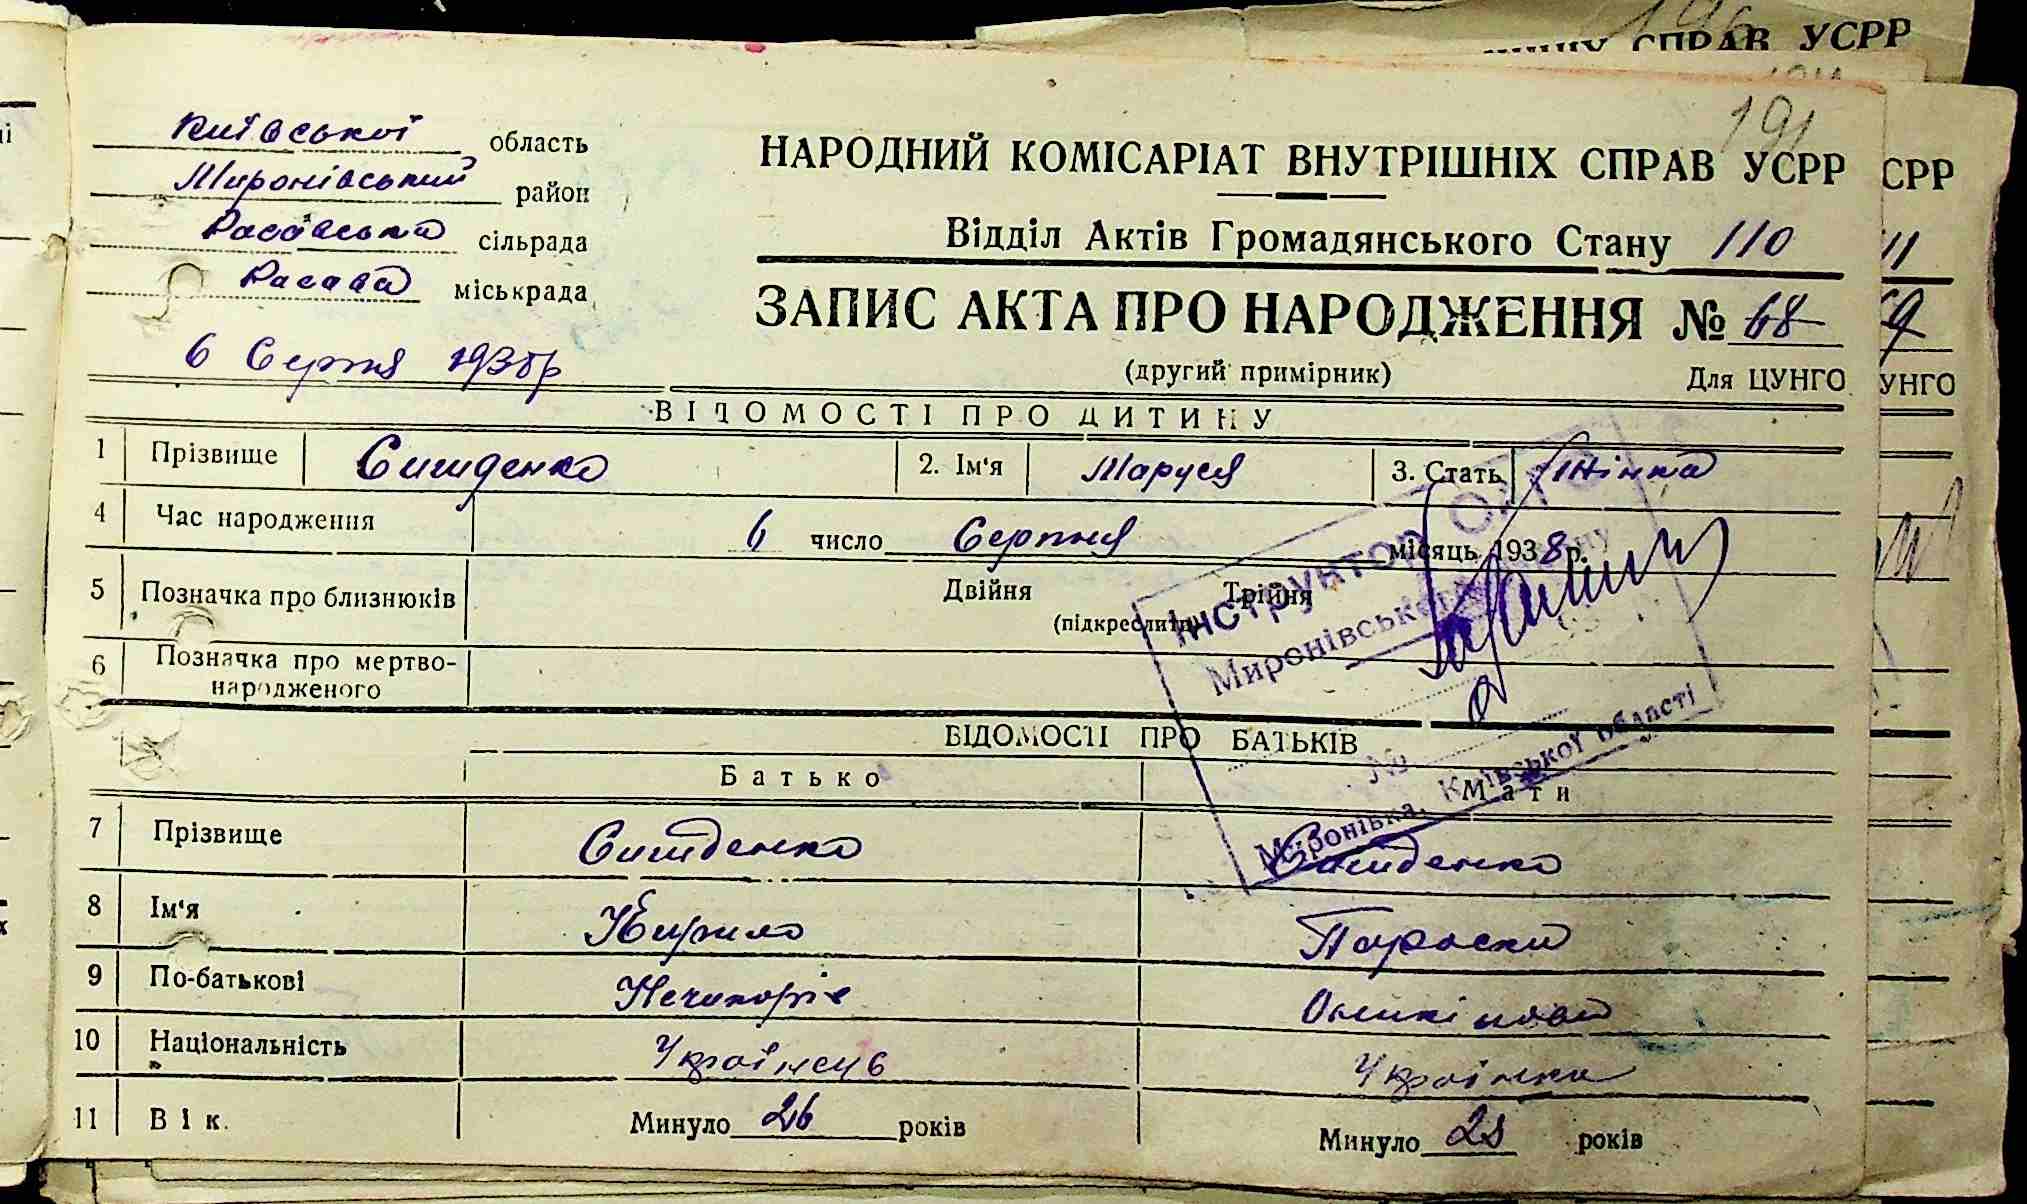 196
СПРАВ УСРР
191
Київської область
Миронівський район
Расавська сільрада
Расава міськрада
6 Серпня 1938р
НАРОДНИЙ КОМІСАРІАТ ВНУТРІШНІХ СПРАВ УСРР
СРР
Відділ Актів Громадянського Стану 110
11
ЗАПИС АКТА ПРО НАРОДЖЕННЯ № 68
69
(другий примірник) Для ЦУНГО
УНГО
ВІДОМОСТІ ПРО ДИТИНУ
1 Прізвище 2. Ім'я Маруся 3. Стать Жінка
4 Час народження 6 число Серпня місяць 1938 р.
5 Позначка про близнюків Двійня Трійня
(підкреслити)
6 Позначка про мертво-
народженого
Інструктор
Миронівськ
№
Миронівка, Київської області
ВІДОМОСТІ ПРО БАТЬКІВ
Батько Мати
7 Прізвище
8 Ім'я Кирило Параска
9 По-батькові
10 Національність Українець Українка
11 Вік. Минуло 26 років Минуло років